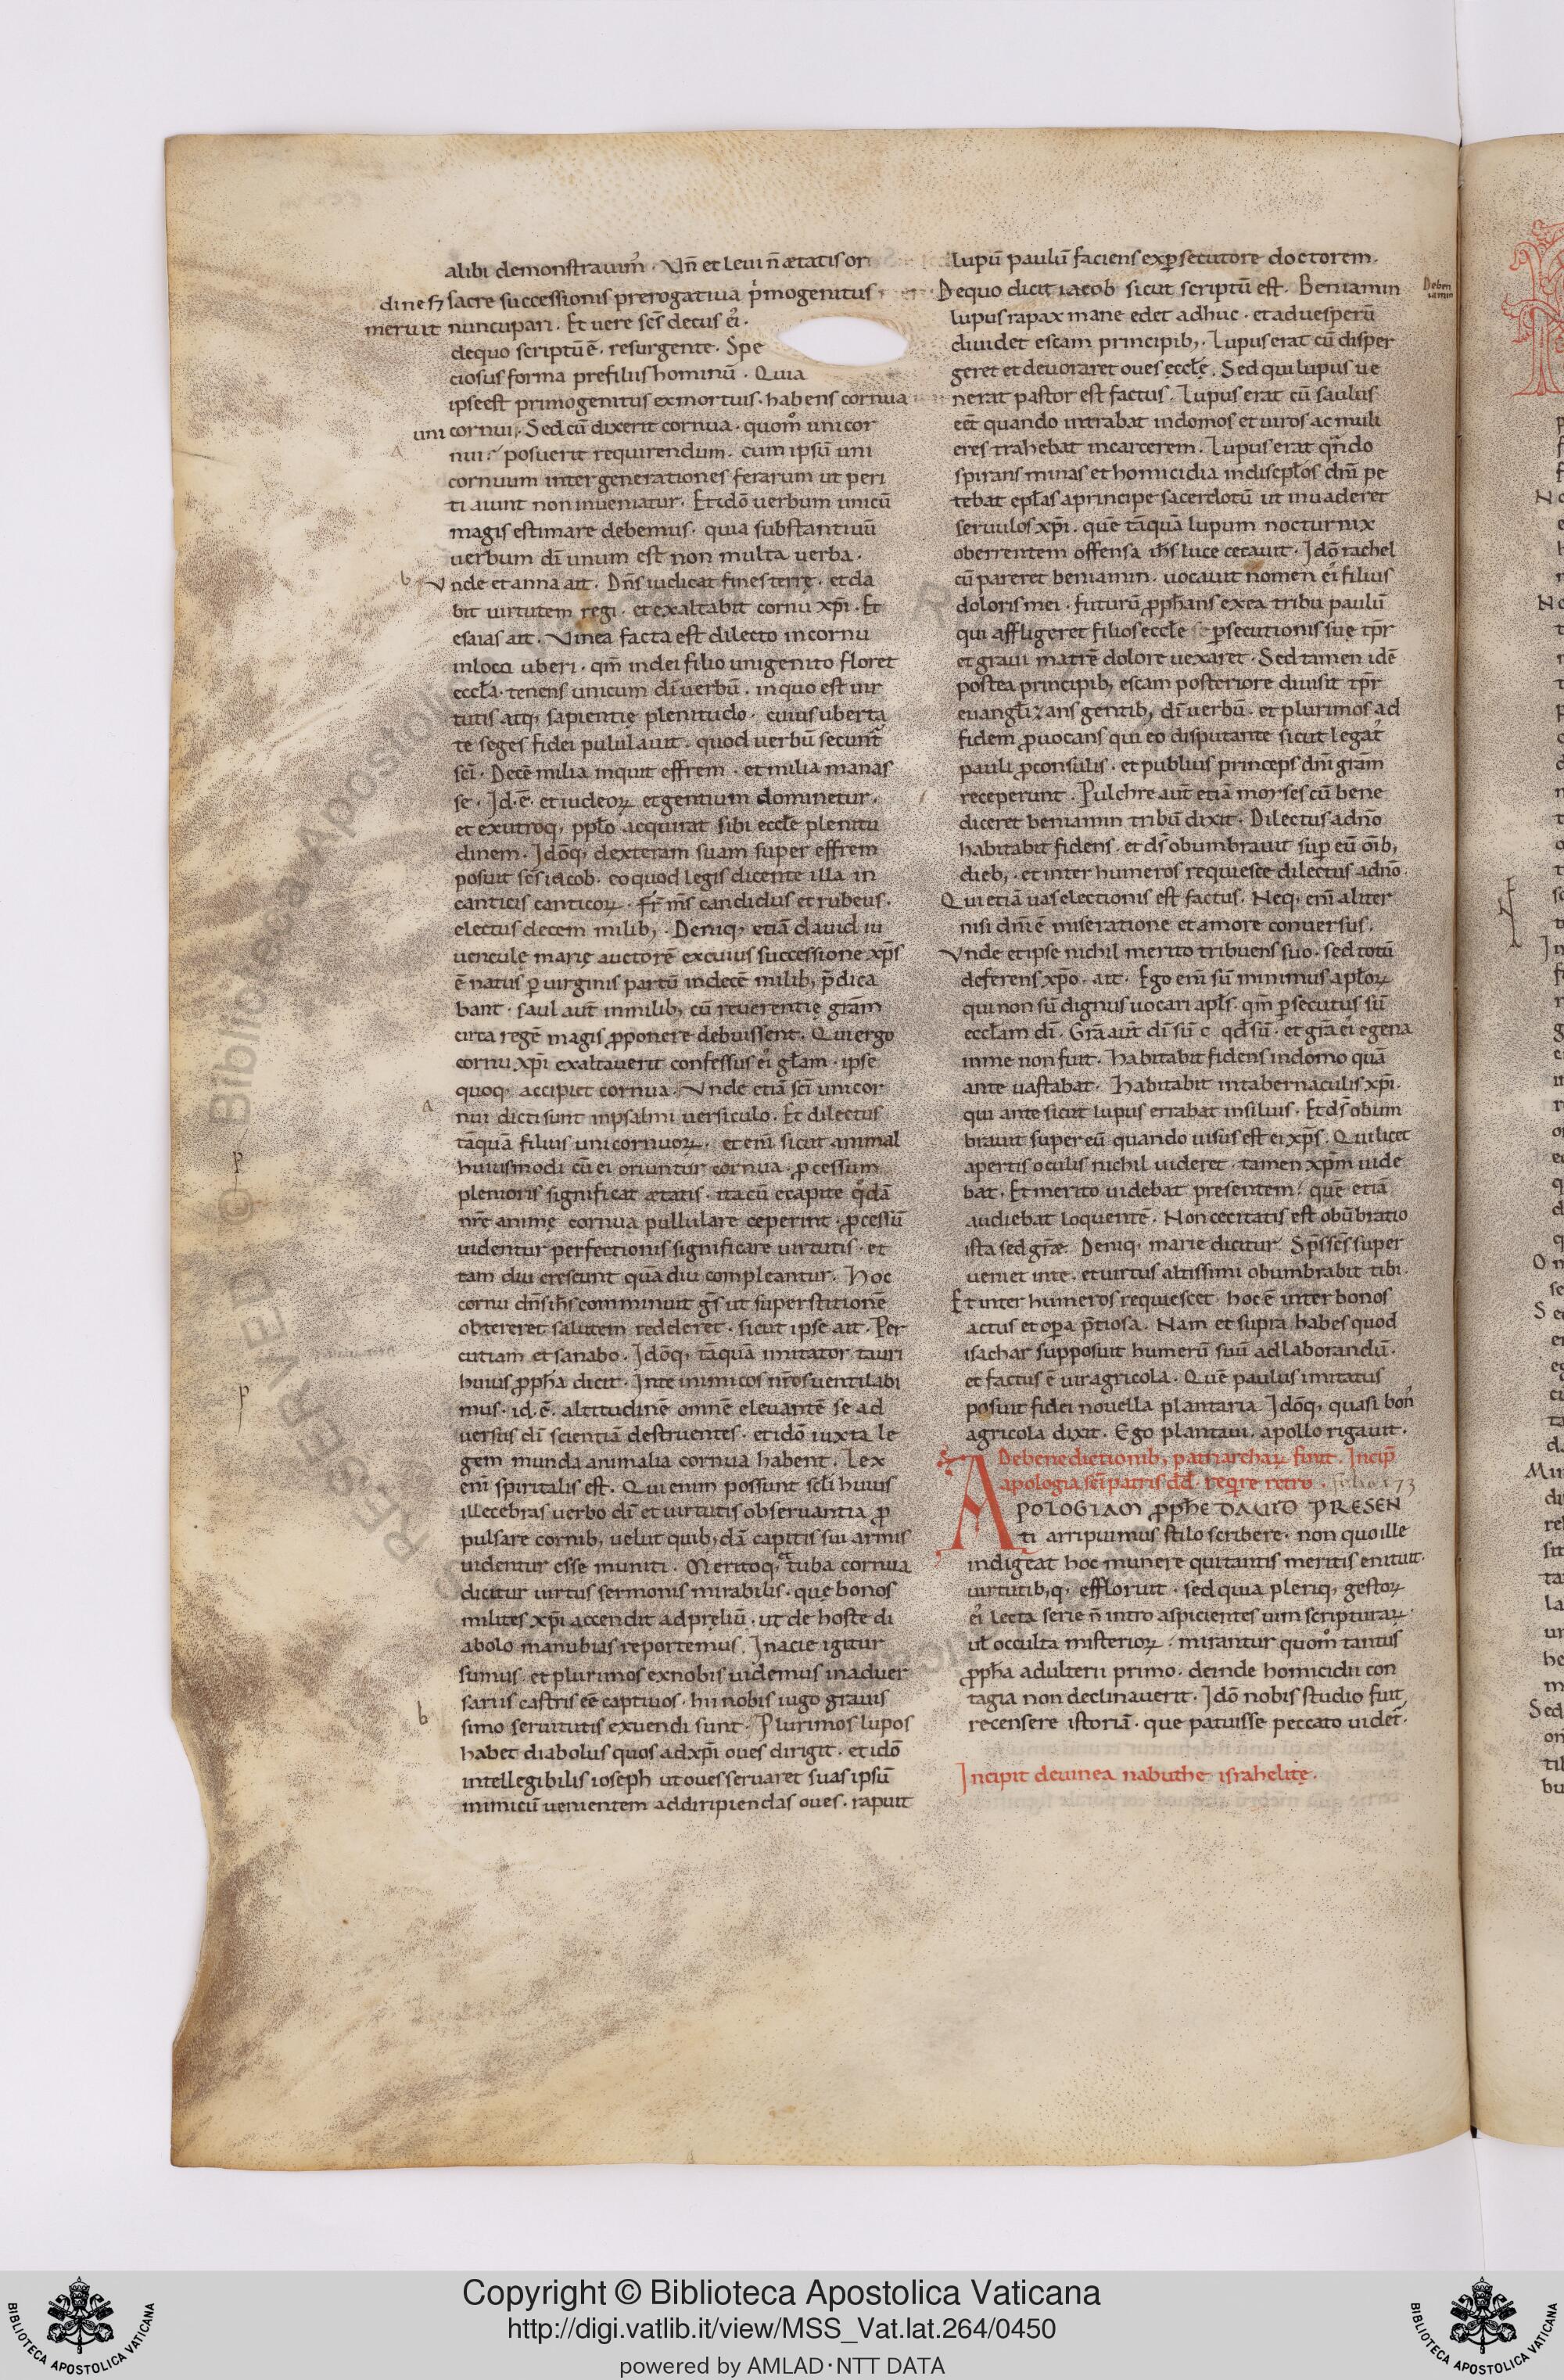 alibi demonstrauim᷒. Vn̄ et leui n̄ ætatis or
dine sꝫ sacre successionis prerogatiua p̍mogenitus
meruit nuncupari. Et uere scs̄ decus ei᷒.
dequo scriptū ē. resurgente. Spe
ciosus forma prefiliis hominū. Quia
ipse est primogenitus exmortuis. habens cornua
unicornui. Sed cū dixerit cornua. quom̊ unicor
nui? posuerit requirendum. cum ipsū uni
cornuum inter generationes ferarum ut peri
ti aiunt non inueniatur. Et idō uerbum unicū
magis estimare debemus. quia substantiuū
uerbum dī unum est non multa uerba.
Vnde et anna ait. Dn̄s iudicat fines terre. et da
bit uirtutem regi. et exaltabit cornu xp̄i. Et
esaias ait. Vinea facta est dilecto in cornu
in loco uberi. qm̄ in dei filio unigenito floret
eccl̄a. tenens unicum dī uerbū. in quo est uir
tutis atq; sapientię plenitudo. cuius uberta
te seges fidei pululauit. quod uerbū secunt᷒
scī. Decē milia inquit effrem. et milia manas
se. Id. ē. et iudeoꝝ et gentium dominetur.
et ex utroq; ppl̄o acquirat sibi eccl̄e plenitu
dinem. Idōq; dexteram suam super effrem
posuit scs̄ iacob. eo quod legis dicente illa in
canticis canticoꝝ. Fr̄ m̄s candidus et rubeus.
electus decem milib;. Deniq; etiā dauid iu
uencule marię auctorē ex cuius successione xp̄s
ē natus ꝑ uirginis partū in decē milib; p̄dica
bant. saul aut̄ in milib; cū reuerentię gr̄am
circa regē magis ꝓponere debuissent. Qui ergo
cornu xp̄i exaltauerit confessus ei᷒ gl̄am. ipse
quoq; accipiet cornua. Vnde etiā scī unicor
nui dicti sunt in psalmi uersiculo. Et dilectus
tāquā filius unicornuoꝝ. et enī sicut animal
huiusmodi cū ei oriuntur cornua. ꝓcessum
plenioris significat ætatis. ita cū e capite q̊dā
nr̄e animę cornua pullulare ceperint. ꝓcessū
uidentur perfectionis significare uirtutis. et
tam diu crescunt quādiu compleantur. Hoc
cornu dn̄s ih̄s comminuit gs̄ ut superstitionē
obtereret salutem redderet. sicut ipse ait. Per
cutiam et sanabo. Idōq; tāquā imitator tauri
huius ꝓph̄a dicit. In te inimicos nr̄os uentilabi
mus. id. ē. altitudinē omnē eleuantē se ad
uersus dī scientiā destruentes. et idō iuxta le
gem munda animalia cornua habent. Lex
enī spiritalis est. Qui enim possunt scl̄i huius
illecebras uerbo dī et uirtutis obseruantia ꝓ
pulsare cornib; uelut quib;dā capitis sui armis
uidentur esse muniti. Meritoq; tuba cornua
dicitur uirtus sermonis mirabilis. quę bonos
milites xp̄i accendit ad pręliū. ut de hoste di
abolo manubias reportemus. In acie igitur
sumus. et plurimos ex nobis uidemus in aduer
sariis castris eē captiuos. hii nobis iugo grauis
simo seruitutis exuendi sunt. Plurimos lupos
habet diabolus quos ad xp̄i oues dirigit. et idō
intellegibilis ioseph ut oues seruaret suas ipsū
inimicū uenientem ad diripiendas oues. rapuit
lupū paulū faciens ex ꝑsecutore doctorem.
De quo dicit iacob sicut scriptū est. Beniamin
Deben
iamin
lupus rapax mane edet adhuc. et ad uesperū
diuidet escam principib;. Lupus erat cū disper
geret et deuoraret oues ęccl̄ę. Sed qui lupus ue
nerat pastor est factus. Lupus erat cū saulus
eēt quando intrabat in domos et uiros ac muli
eres trahebat in carcerem. Lupus erat qn̄do
spirans minas et homicidia in discipl̄os dnī pe
tebat epl̄as a principe sacerdotū ut inuaderet
seruulos xp̄i. quē tāquā lupum nocturnix
oberrentem offensa ih̄s luce cecauit. Idō rachel
cū pareret beniamin. uocauit nomen ei᷒ filius
doloris mei. futurū ꝓph̄ans ex ea tribu paulū
qui affligeret filios eccl̄e ꝑsecutionis suę tp̄r
et graui matrē dolore uexaret. Sed tamen idē
postea principib; escam posteriore diuisit tp̄r
euangl̄izans gentib; dī uerbū. et plurimos ad
fidem ꝓuocans qui eo disputante sicut legat᷒
pauli ꝓconsulis. et publius princeps dnī gr̄am
receperunt. Pulchre aut̄ etiā moyses cū bene
diceret beniamin tribū dixit. Dilectus a dn̄o
habitabit fidens. et ds̄ obumbrauit suꝑ eū om̄ib;
dieb;. et inter humeros requiesce dilectus a dn̄o.
Qui etiā uas electionis est factus. Neq; enī aliter
nisi dnī ē miseratione et amore conuersus.
Vnde et ipse nichil merito tribuens suo. sed totū
deferens xp̄o. ait. Ego enī sū minimus apl̄oꝝ
qui non sū dignus uocari apl̄s. qm̄ ꝑsecutus sū
eccl̄am dī. Gr̄a aut̄ dī sū c qd̄ sū. et gr̄a ei᷒ egena
in me non fuit. Habitabit fidens in domo quā
ante uastabat. Habitabit in tabernaculis xp̄i.
qui ante sicut lupus errabat in siluis. Et ds̄ obum
brauit super eū quando uisus est ei xp̄s. Qui licet
apertis oculis nichil uideret. tamen xp̄m uide
bat. Et merito uidebat presentem? quē etiā
audiebat loquentē. Non cecitatis est obūbratio
ista sed gr̄æ. Deniq; marie dicitur. Sp̄s scs̄ super
ueniet in te. et uirtus altissimi obumbrabit tibi.
Et inter humeros requiescet. hoc ē inter bonos
actus et oꝑa p̄tiosa. Nam et supra habes quod
isachar supposuit humerū suū ad laborandū.
et factus ē uir agricola. Quē paulus imitatus
posuit fidei nouella plantaria. Idōq; quasi bon᷒
agricola dixit. Ego plantaui. apollo rigauit.
De benedictionib; patriarchaꝝ finit. Incip̄
apologia scī patris dd̄. reqre retro. folio 173
APOLOGIAM ꝓPHE DAUID PRESEN
ti arripuimus stilo scribere. non quo ille
indigeat hoc munere qui tantis meritis enituit.
uirtutib;q; effloruit. sed quia pleriq; gestoꝝ
ei᷒ lecta serie n̄ intro aspicientes uim scripturaꝝ
ul̄ occulta misterioꝝ. mirantur quom̊ tantus
ꝓph̄a adulterii primo. deinde homicidii con
tagia non declinauerit. Idō nobis studio fuit
recensere istoriā. que patuisse peccato uidet᷒.
Incipit de uinea nabuthe israhelitę.
Copyright © Biblioteca Apostolica Vaticana
http://digi.vatlib.it/view/MSS_Vat.lat.264/0450
powered by AMLAD·NTT DATA
BIBLIOTECA APOSTOLICA VATICANA
BIBLIOTECA APOSTOLICA VATICANA